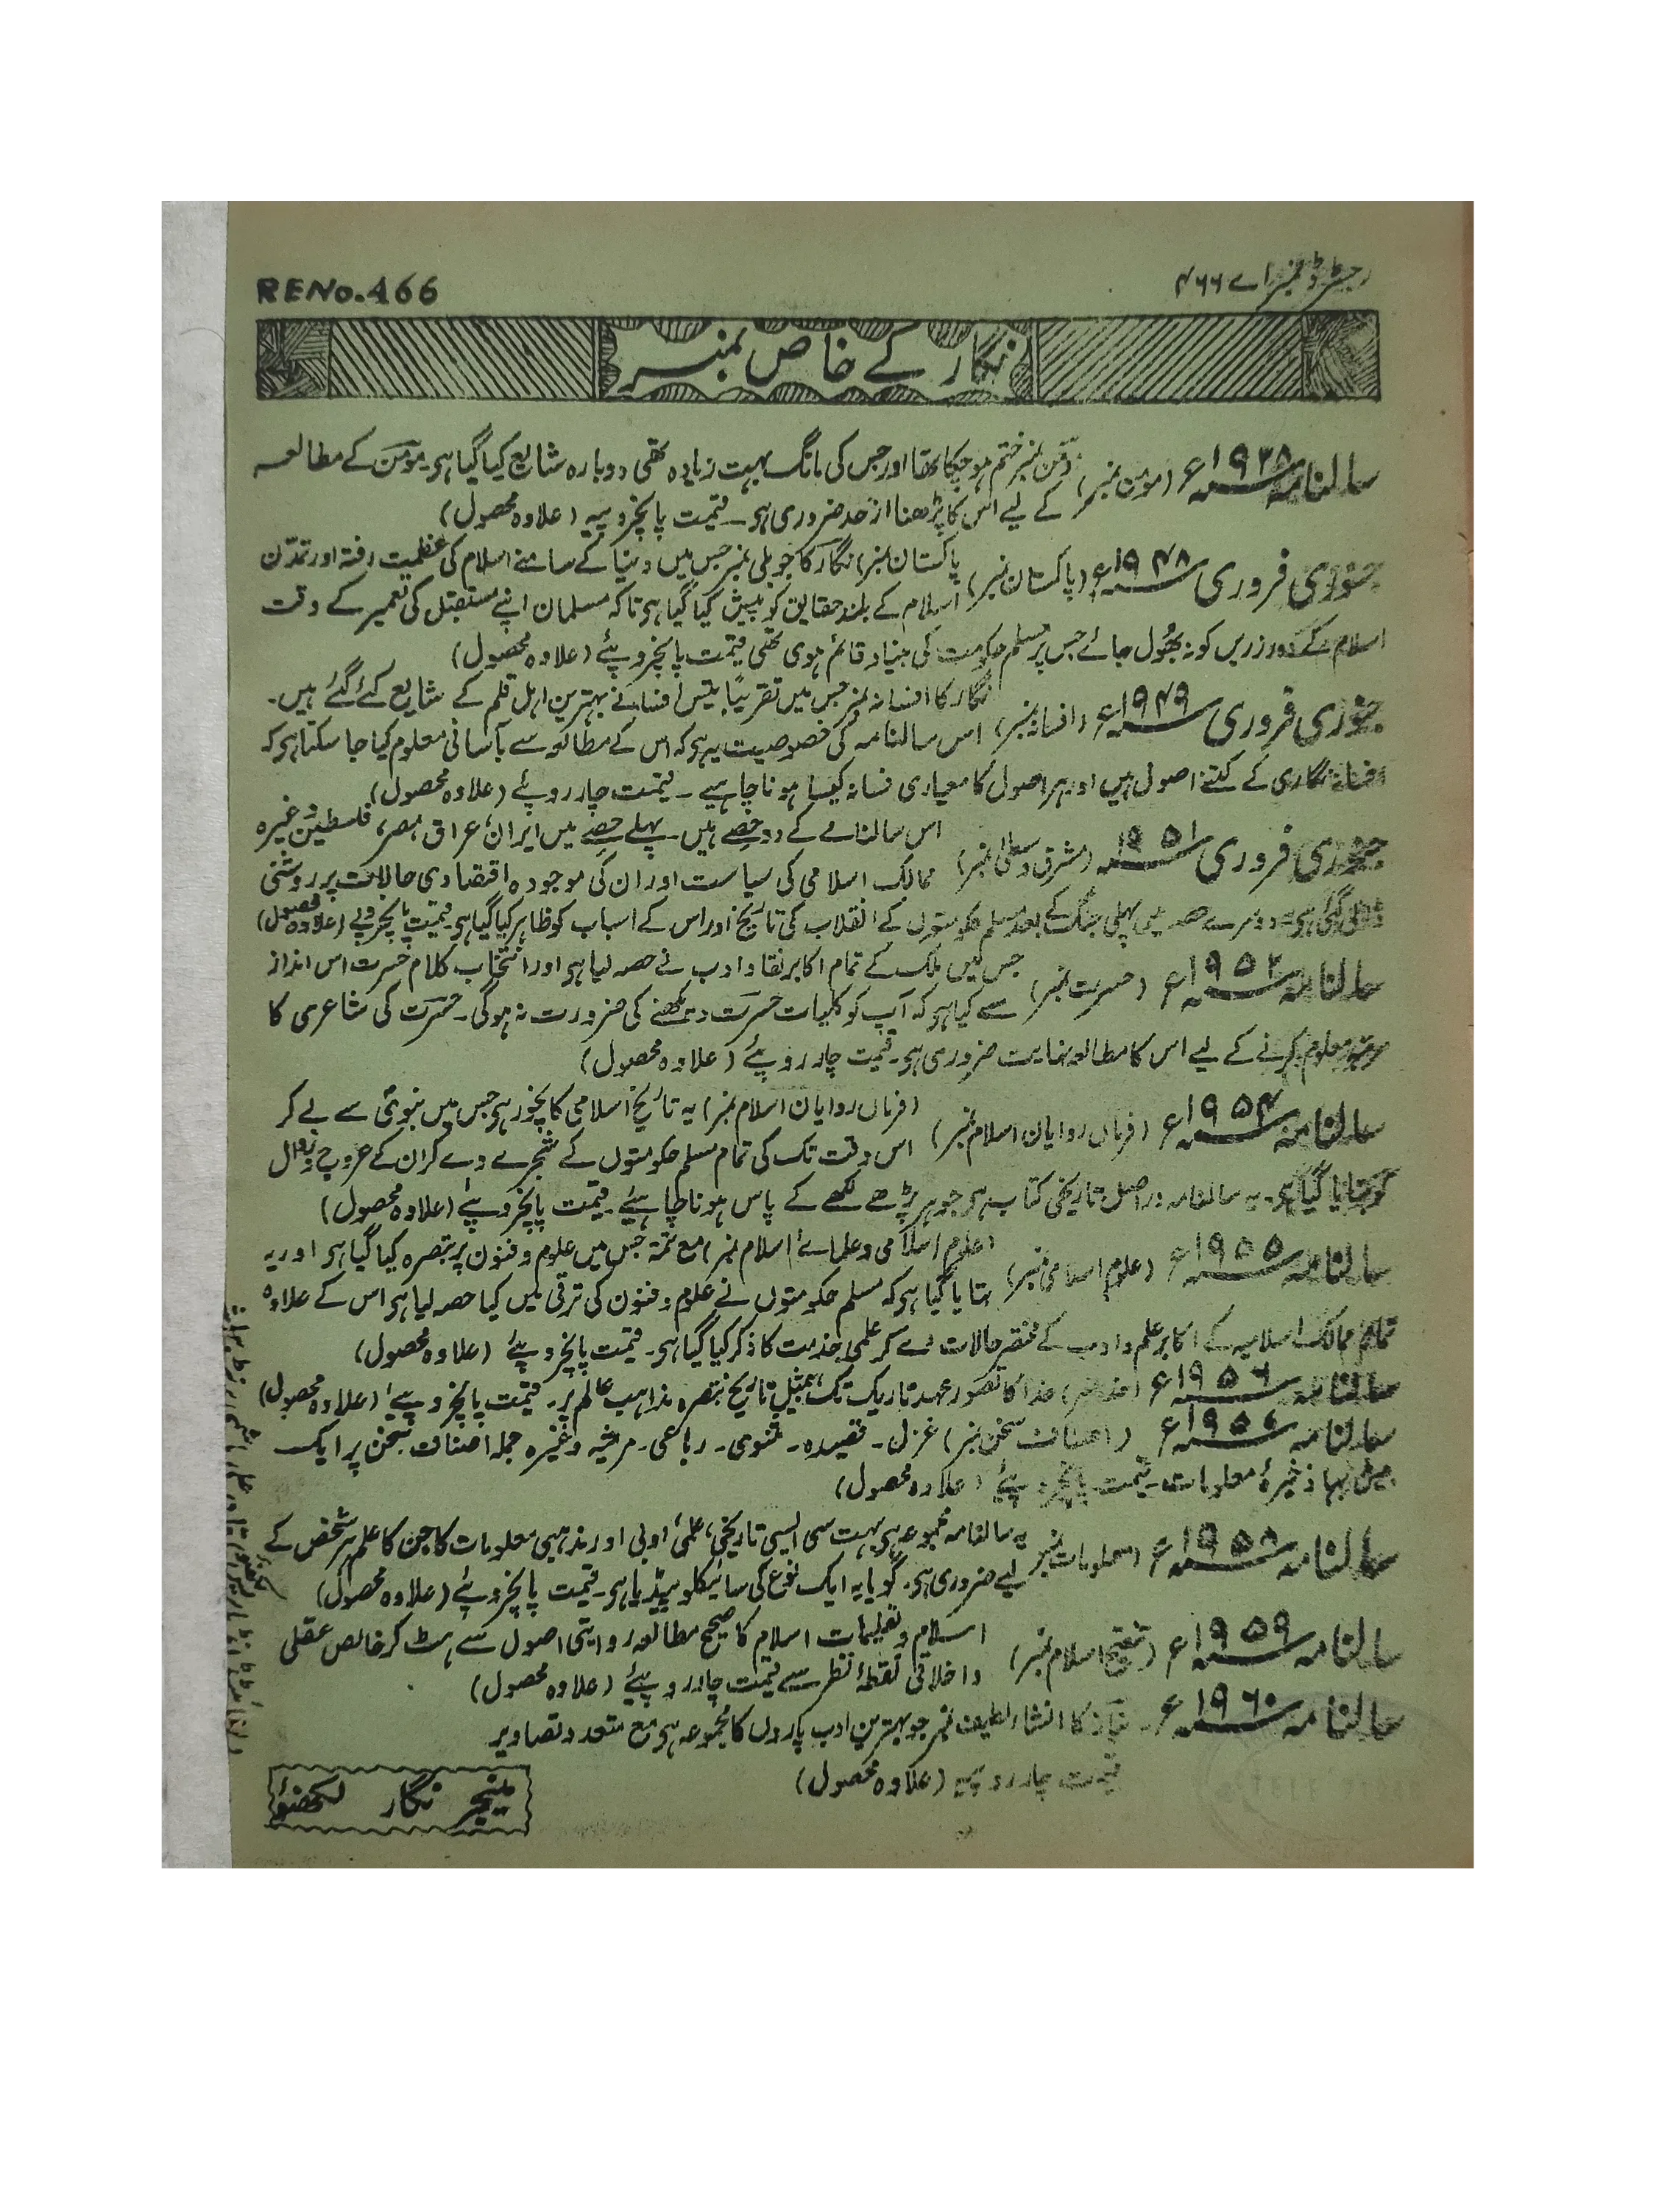 رجسٹرڈ نمبر اے ۴۶۶
RENo.466
نگار کے خاص نمبر
سالنامہ ۱۹۲۸ء (مومن نمبر) مومن نمبر ختم ہوچکا تھا اور جس کی مانگ بہت زیادہ تھی دوبارہ شایع کیا گیا ہی۔ مومن کے مطالعہ
کے لیے اس کا پڑھنا از حد ضروری ہی۔ قیمت پانچروپیہ (علاوہ محصول)
جنوری فروری ۱۹۴۸ء (پاکستان نمبر) پاکستان نمبر) نگار کا جوبلی نمبر جس میں دنیا کے سامنے اسلام کی عظمت رفتہ اور تمدّن
اسلام کے بلند حقایق کو پیش کیا گیا ہی تاکہ مسلمان اپنے مستقبل کی تعمیر کے وقت
اسلام کے دور زریں کو نہ بھول جائے جس پر مسلم حکومت کی بنیاد قائم ہوی تھی قیمت پانچروپئے (علاوہ محصول)
جنوری فروری ۱۹۴۹ء (افسانہ نمبر) نگار کا افسانہ نمبر جس میں تقریباً بتیس افسانے بہترین اہل قلم کے شایع کئے گئے ہیں۔
اس سالنامہ کی خصوصیت یہ ہی کہ اس کے مطالعہ سے بآسانی معلوم کیا جا سکتا ہی کہ
افسانہ نگاری کے کتنے اصول ہیں اور ہر اصول کا معیاری فسانہ کیسا ہونا چاہیے۔ قیمت چار روپئے (علاوہ محصول)
جنوری فروری ۱۹۵۱ (مشرق وسطیٰ نمبر) اس سالنامے کے دو حصے ہیں۔ پہلے حصے میں ایران، عراق، مصر، فلسطین وغیرہ
ممالک اسلامی کی سیاست اور ان کی موجودہ اقتصادی حالات پر روشنی
ڈالی گئی ہی۔ دوسرے حصہ میں پہلی جنگ کے بعد مسلم حکومتوں کے انقلاب کی تاریخ اور اس کے اسباب کو ظاہر کیا گیا ہی۔ قیمت پانچروپے (علاوہ محصول)
سالنامہ ۱۹۵۲ء (حسرت نمبر) جس میں ملک کے تمام اکابر نقاد ادب نے حصہ لیا ہی اور انتخاب کلام حسرت اس انداز
سے کیا ہی کہ آپ کو کلیات حسرت دیکھنے کی ضرورت نہ ہوگی۔ حسرت کی شاعری کا
مرتبہ معلوم کرنے کے لیے اس کا مطالعہ نہایت ضروری ہی۔ قیمت چار روپئے (علاوہ محصول)
سالنامہ ۱۹۵۴ء (فرماں روایان اسلام نمبر) (فرماں روایان اسلام نمبر) یہ تاریخ اسلامی کا نچوڑ ہی جس میں نبوی سے لے کر
اس وقت تک کی تمام مسلم حکومتوں کے شجرے دے کر ان کے عروج و زوال
کو بتایا گیا ہی۔ یہ سالنامہ دراصل تاریخی کتاب ہی جو ہر پڑھے لکھے کے پاس ہونا چاہیئے۔ قیمت پانچروپئے (علاوہ محصول)
سالنامہ ۱۹۵۵ء (علوم اسلامی نمبر) (علوم اسلامی و علمائے اسلام نمبر) مع تتمۃ جس میں علوم و فنون پر تبصرہ کیا گیا ہی اور یہ
بتایا گیا ہی کہ مسلم حکومتوں نے علوم و فنون کی ترقی میں کیا حصہ لیا ہی اس کے علاوہ
تمام ممالک اسلامیہ کے اکابر علم و ادب کے مختصر حالات دے کر علمی خدمت کا ذکر کیا گیا ہی۔ قیمت پانچروپئے (علاوہ محصول)
سالنامہ ۱۹۵۶ء (خدا نمبر) خدا کا تصور عہد تاریک تک، بمثیل تاریخ تبصرہ مذاہب عالم پر۔ قیمت پانچروپئے (علاوہ محصول)
سالنامہ ۱۹۵۷ء (اصناف سخن نمبر) غزل۔ قصیدہ۔ مثنوی۔ رباعی۔ مرثیہ وغیرہ جملہ اصناف سخن پر ایک
بیش بہا ذخیرۂ معلومات۔ قیمت پانچروپئے (علاوہ محصول)
سالنامہ ۱۹۵۸ء (معلومات نمبر) یہ سالنامہ مجموعہ ہی بہت سی ایسی تاریخی، علمی، ادبی اور مذہبی معلومات کا جن کا علم ہر شخص کے
لیے ضروری ہی۔ گویا یہ ایک نوع کی سائیکلوپیڈیا ہی۔ قیمت پانچروپئے (علاوہ محصول)
سالنامہ ۱۹۵۹ء (تنقیح اسلام نمبر) اسلام و تعلیمات اسلام کا صحیح مطالعہ روایتی اصول سے ہٹ کر خالص عقلی
و اخلاقی نقطۂ نظر سے قیمت چار روپیئے (علاوہ محصول)
سالنامہ ۱۹۶۰ء نیاز کا انشاء لطیف نمبر جو بہترین ادب پاروں کا مجموعہ ہی مع متعدد تصاویر
قیمت چار روپیہ (علاوہ محصول)
منیجر نگار لکھنؤ